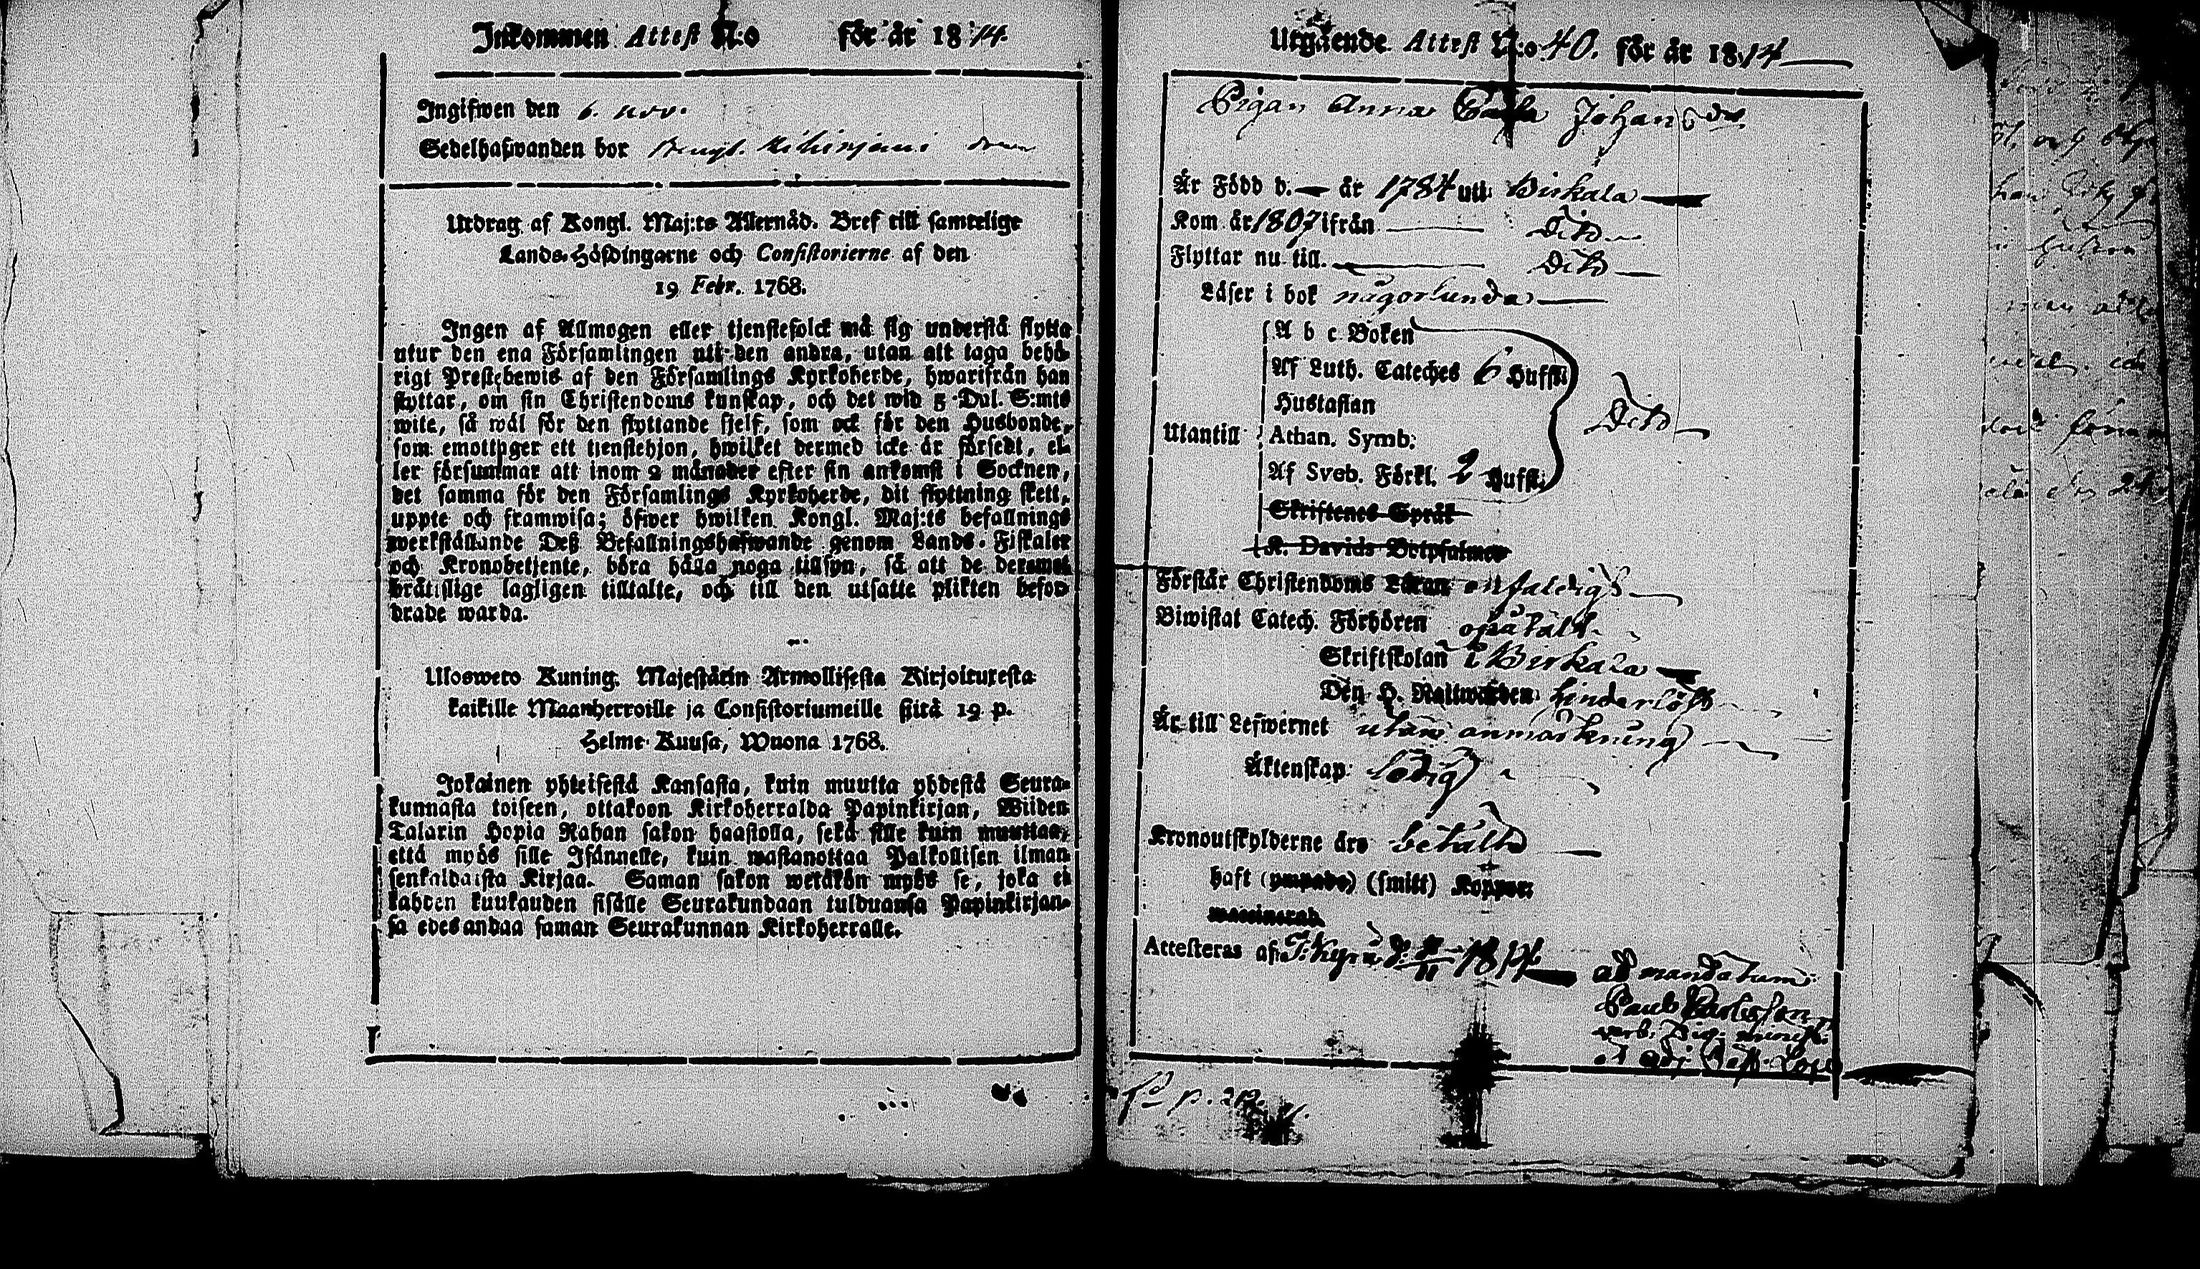 Inkommen Attest N:o för år 1814.
Ingifwen den 6. nov.
Sedelhafwanden bor
Utdrag af Kongl. Maj:ts Allernåd. Bref till samtelige
Lands-Höfdingarne och Consistorierne af den
19 Febr. 1768.
Ingen af Allmogen eller tjenstefolck må sig understå flytta
utur den ena Församlingen uti den andra, utan att taga behö-
rigt Prestebewis af den Församlings Kyrkoherde, hwarifrån han
flyttar, om sin Christendoms kunskap, och det wid 5 Dal. S:mts
wite, så wäl för den flyttande sjelf, som ock för den Husbonde,
som emottager ett tjenstehjon, hwilket dermed icke är försedt, el-
ler försummar att inom 2 månader efter sin ankomst i Socknen,
det samma för den Församlings Kyrkoherde, dit flyttning skett,
uppte och framwisa; öfwer hwilken Kongl. Maj:ts befallnings
werkställande Deß Befallningshafwande genom Lands-Fiskaler
och Kronobetjente, böra hålla noga tillsyn, så att de deremot
brätslige lagligen tilltalte, och till den utsatte plikten befor-
drade warda.
Ulosweto Kuning. Majestätin Armollisesta Kirjoituxesta
kaikille Maanherroille ja Consistoriumeille siitä 19 p.
Helme-Kuusa, Wuona 1768.
Jokainen yhteisestä Kansasta, kuin muutta yhdestä Seura-
kunnasta toiseen, ottakoon Kirkoherralda Papinkirjan, Wiiden
Talarin Hopia Rahan sakon haastolla, sekä sille kuin muuttaa,
että myös sille Isännelle, kuin wastanottaa Palkollisen ilman
senkaldaista Kirjaa. Saman sakon wetäkön myös se, joka ei
kahden kuukauden sisälle Seurakundaan tulduansa Papinkirjan-
sa edesandaa saman Seurakunnan Kirkoherralle.
Utgående Attest N:o 40. för år 1814
Pigan Anna Johansdr
Är Född d. år 1784 uti Birkala
Kom år 1807 ifrån Dito
Flyttar nu till Dito
Läser i bok någorlunda
A b c Boken
Af Luth. Cateches 6 Hufst.
Hustaflan
Utantill Athan. Symb: Dito
Af Sveb. Förkl. 2 Hufst.
Skriftenes Språk
K. Davids Botpsalmer
Förstår Christendoms Läran enfaldigt
Biwistat Catech. Förhören opåtalt
Skriftskolan i Birkala
Den H. Nattwarden hinderlöst
Är till Lefwernet utan anmärkning
Äktenskap: ledig
Kronoutskylderne äro betalte
haft (ympade) (smitt) Koppor;
waccinerad.
Attesteras af 1814
ad mandatum